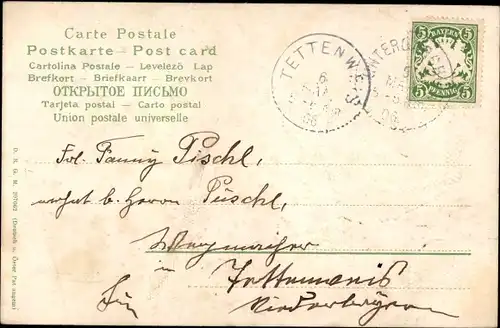 Carte Postale
Postkarte – Post card
Cartolina Postale – Levelező Lap
Brefkort – Briefkaart – Brevkort
ОТКРЫТОЕ ПИСЬМО
Tarjeta postal – Carto postal
Union postale universelle
TETTENWEIS
6
06
06
5 BAYERN 5
5 PFENNIG 5
Frl. Fanny Pischl,
b. Herrn Püschl,
Wegmacher
in Tettenweis
Niederbayern
D. R. G. M.